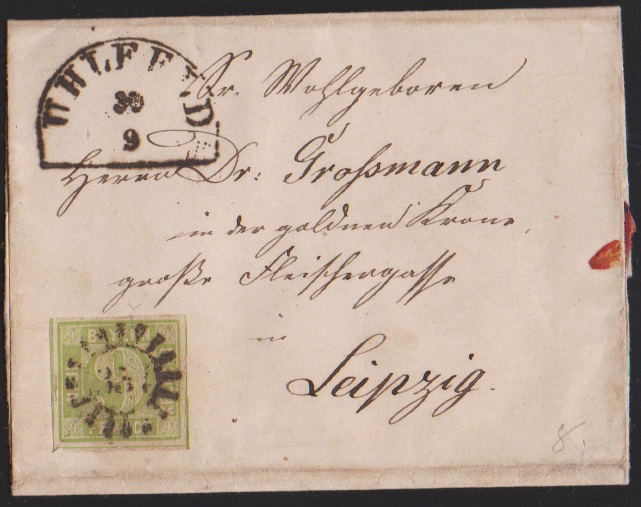 UHLFELD
30
9
Sr. Wohlgeboren
Herrn Dr. Großmann
in der goldnen Krone
große Fleischergasse
in
Leipzig.
9
8